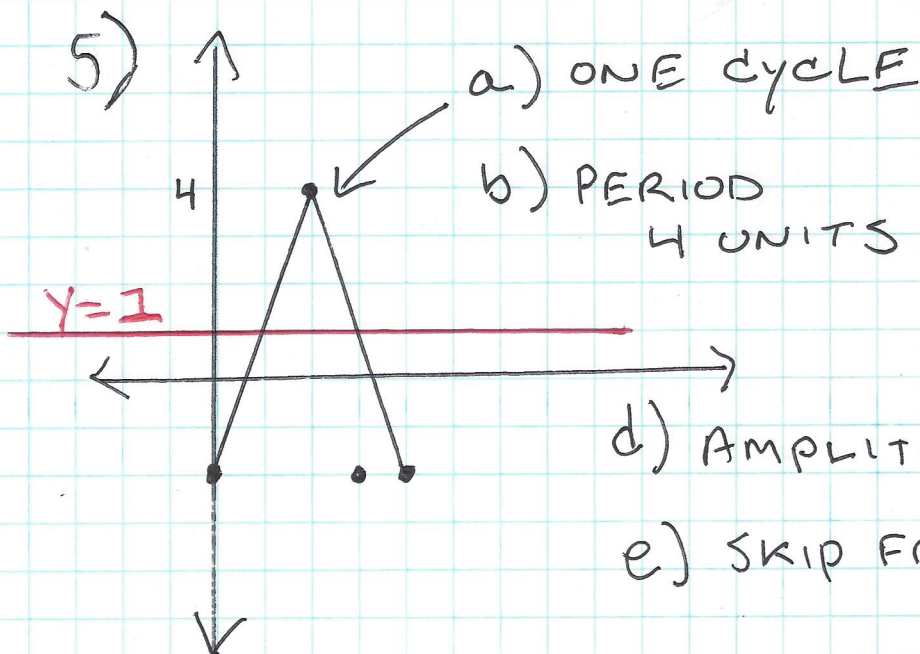 5)
a) ONE CYCLE
b) PERIOD
4 UNITS
4
Y=1
d) AMPLIT
e) SKIP